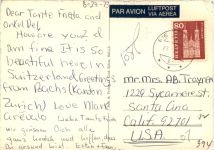 8-29-73
Dear Tante Frieda and
Onkel Del,
How are you? I
am fine It is so
beautiful here in
Switzerland Greetings
from Bachs (Kanton
Zürich) Love Mark
Liebe Tante Frieda
wir grüssen Dich alle
ganz herzlich und hoffen, dass
Du gesund
PAR AVION LUFTPOST
VIA AEREA
80
Mr. Mrs. A.B. Traynor
1228 Sycamore St.
Santa Ana
Calif. 92701
U.S.A.